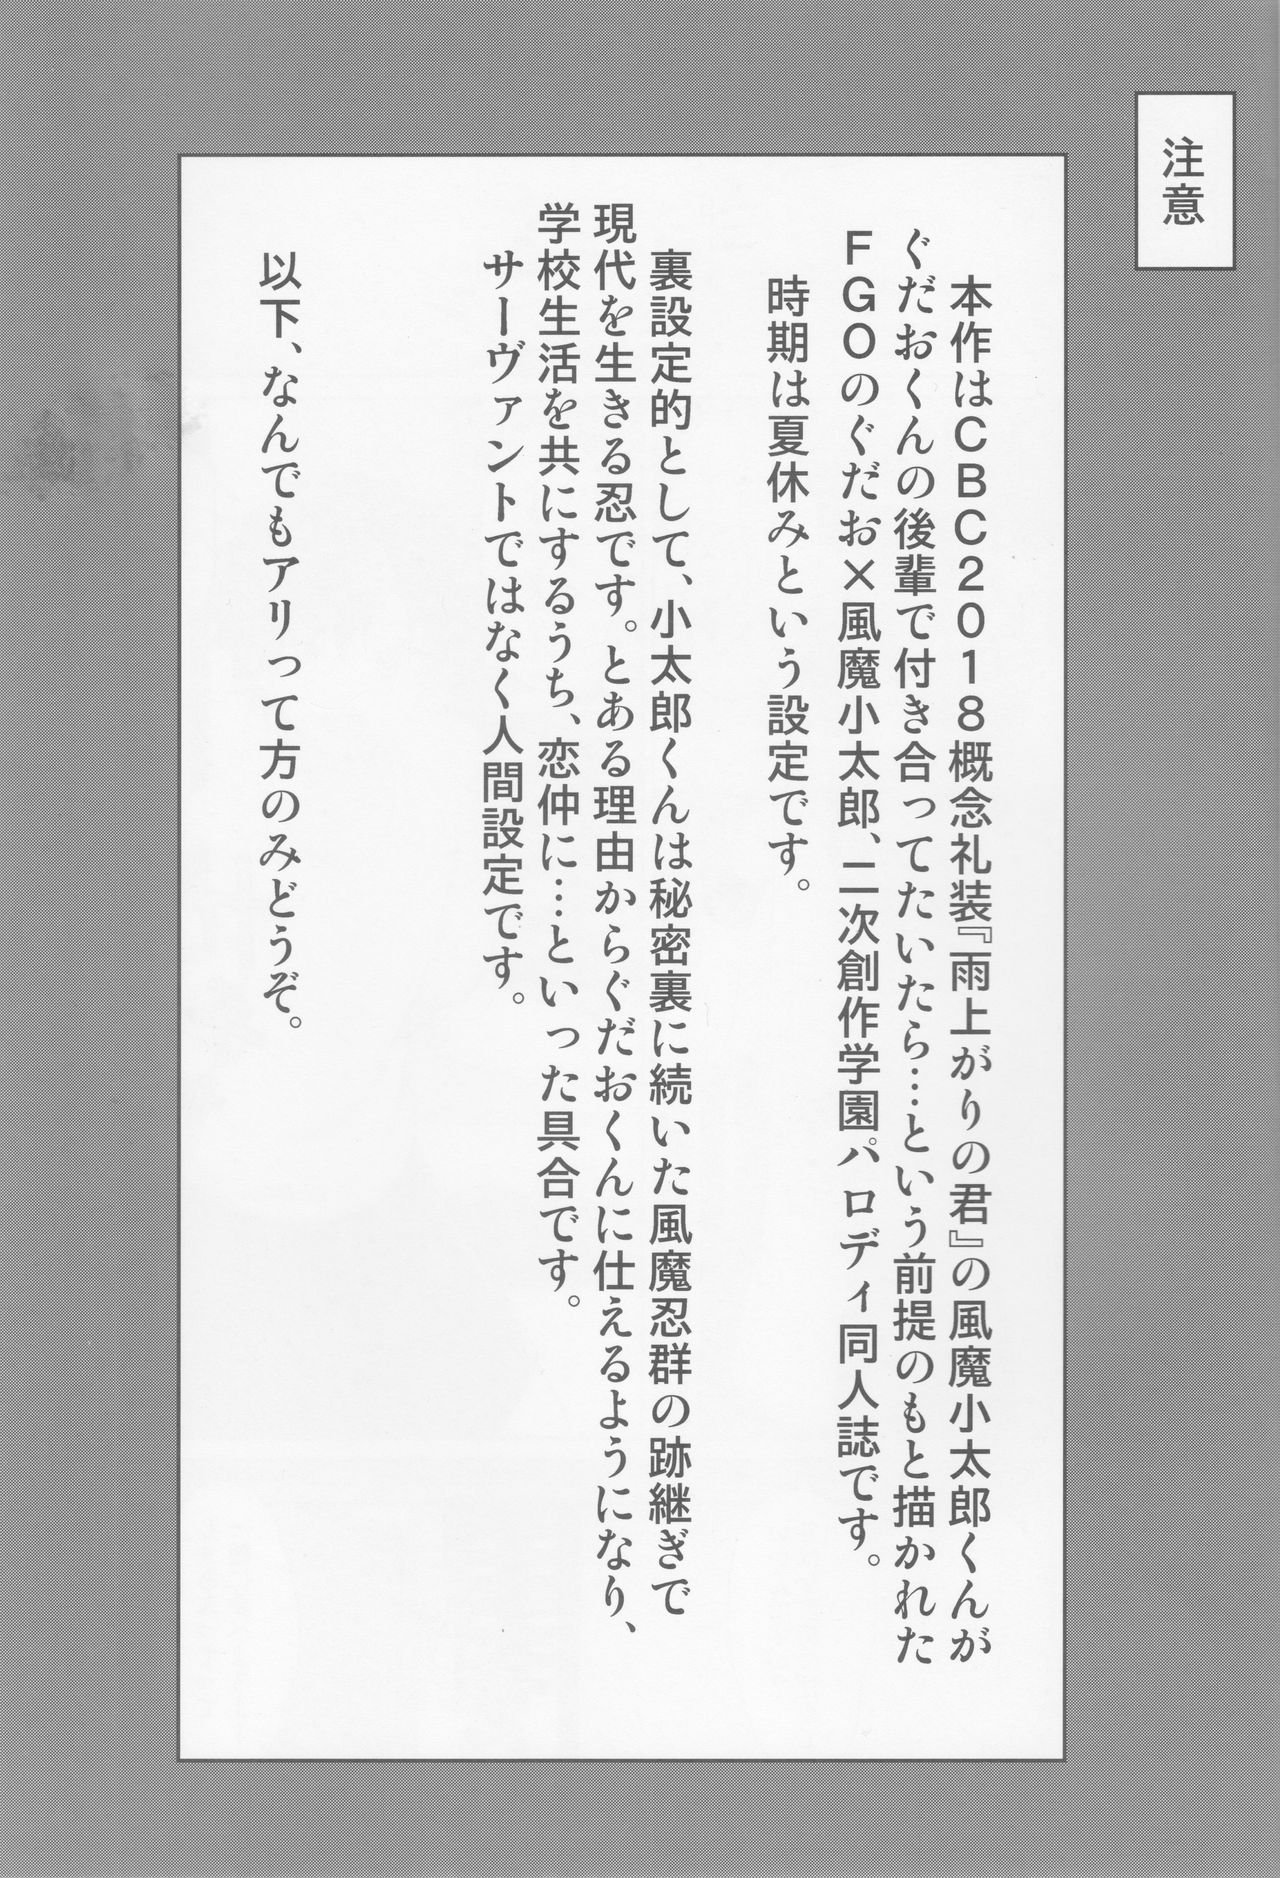 注意
本作はCBC2018概念礼装『雨上がりの君』の風魔小太郎くんが
ぐだおくんの後輩で付き合ってたいたら…という前提のもと描かれた
FGOのぐだお×風魔小太郎、二次創作学園パロディ同人誌です。
時期は夏休みという設定です。
裏設定的として、小太郎くんは秘密裏に続いた風魔忍群の跡継ぎで
現代を生きる忍です。とある理由からぐだおくんに仕えるようになり、
学校生活を共にするうち、恋仲に…といった具合です。
サーヴァントではなく人間設定です。
以下、なんでもアリって方のみどうぞ。